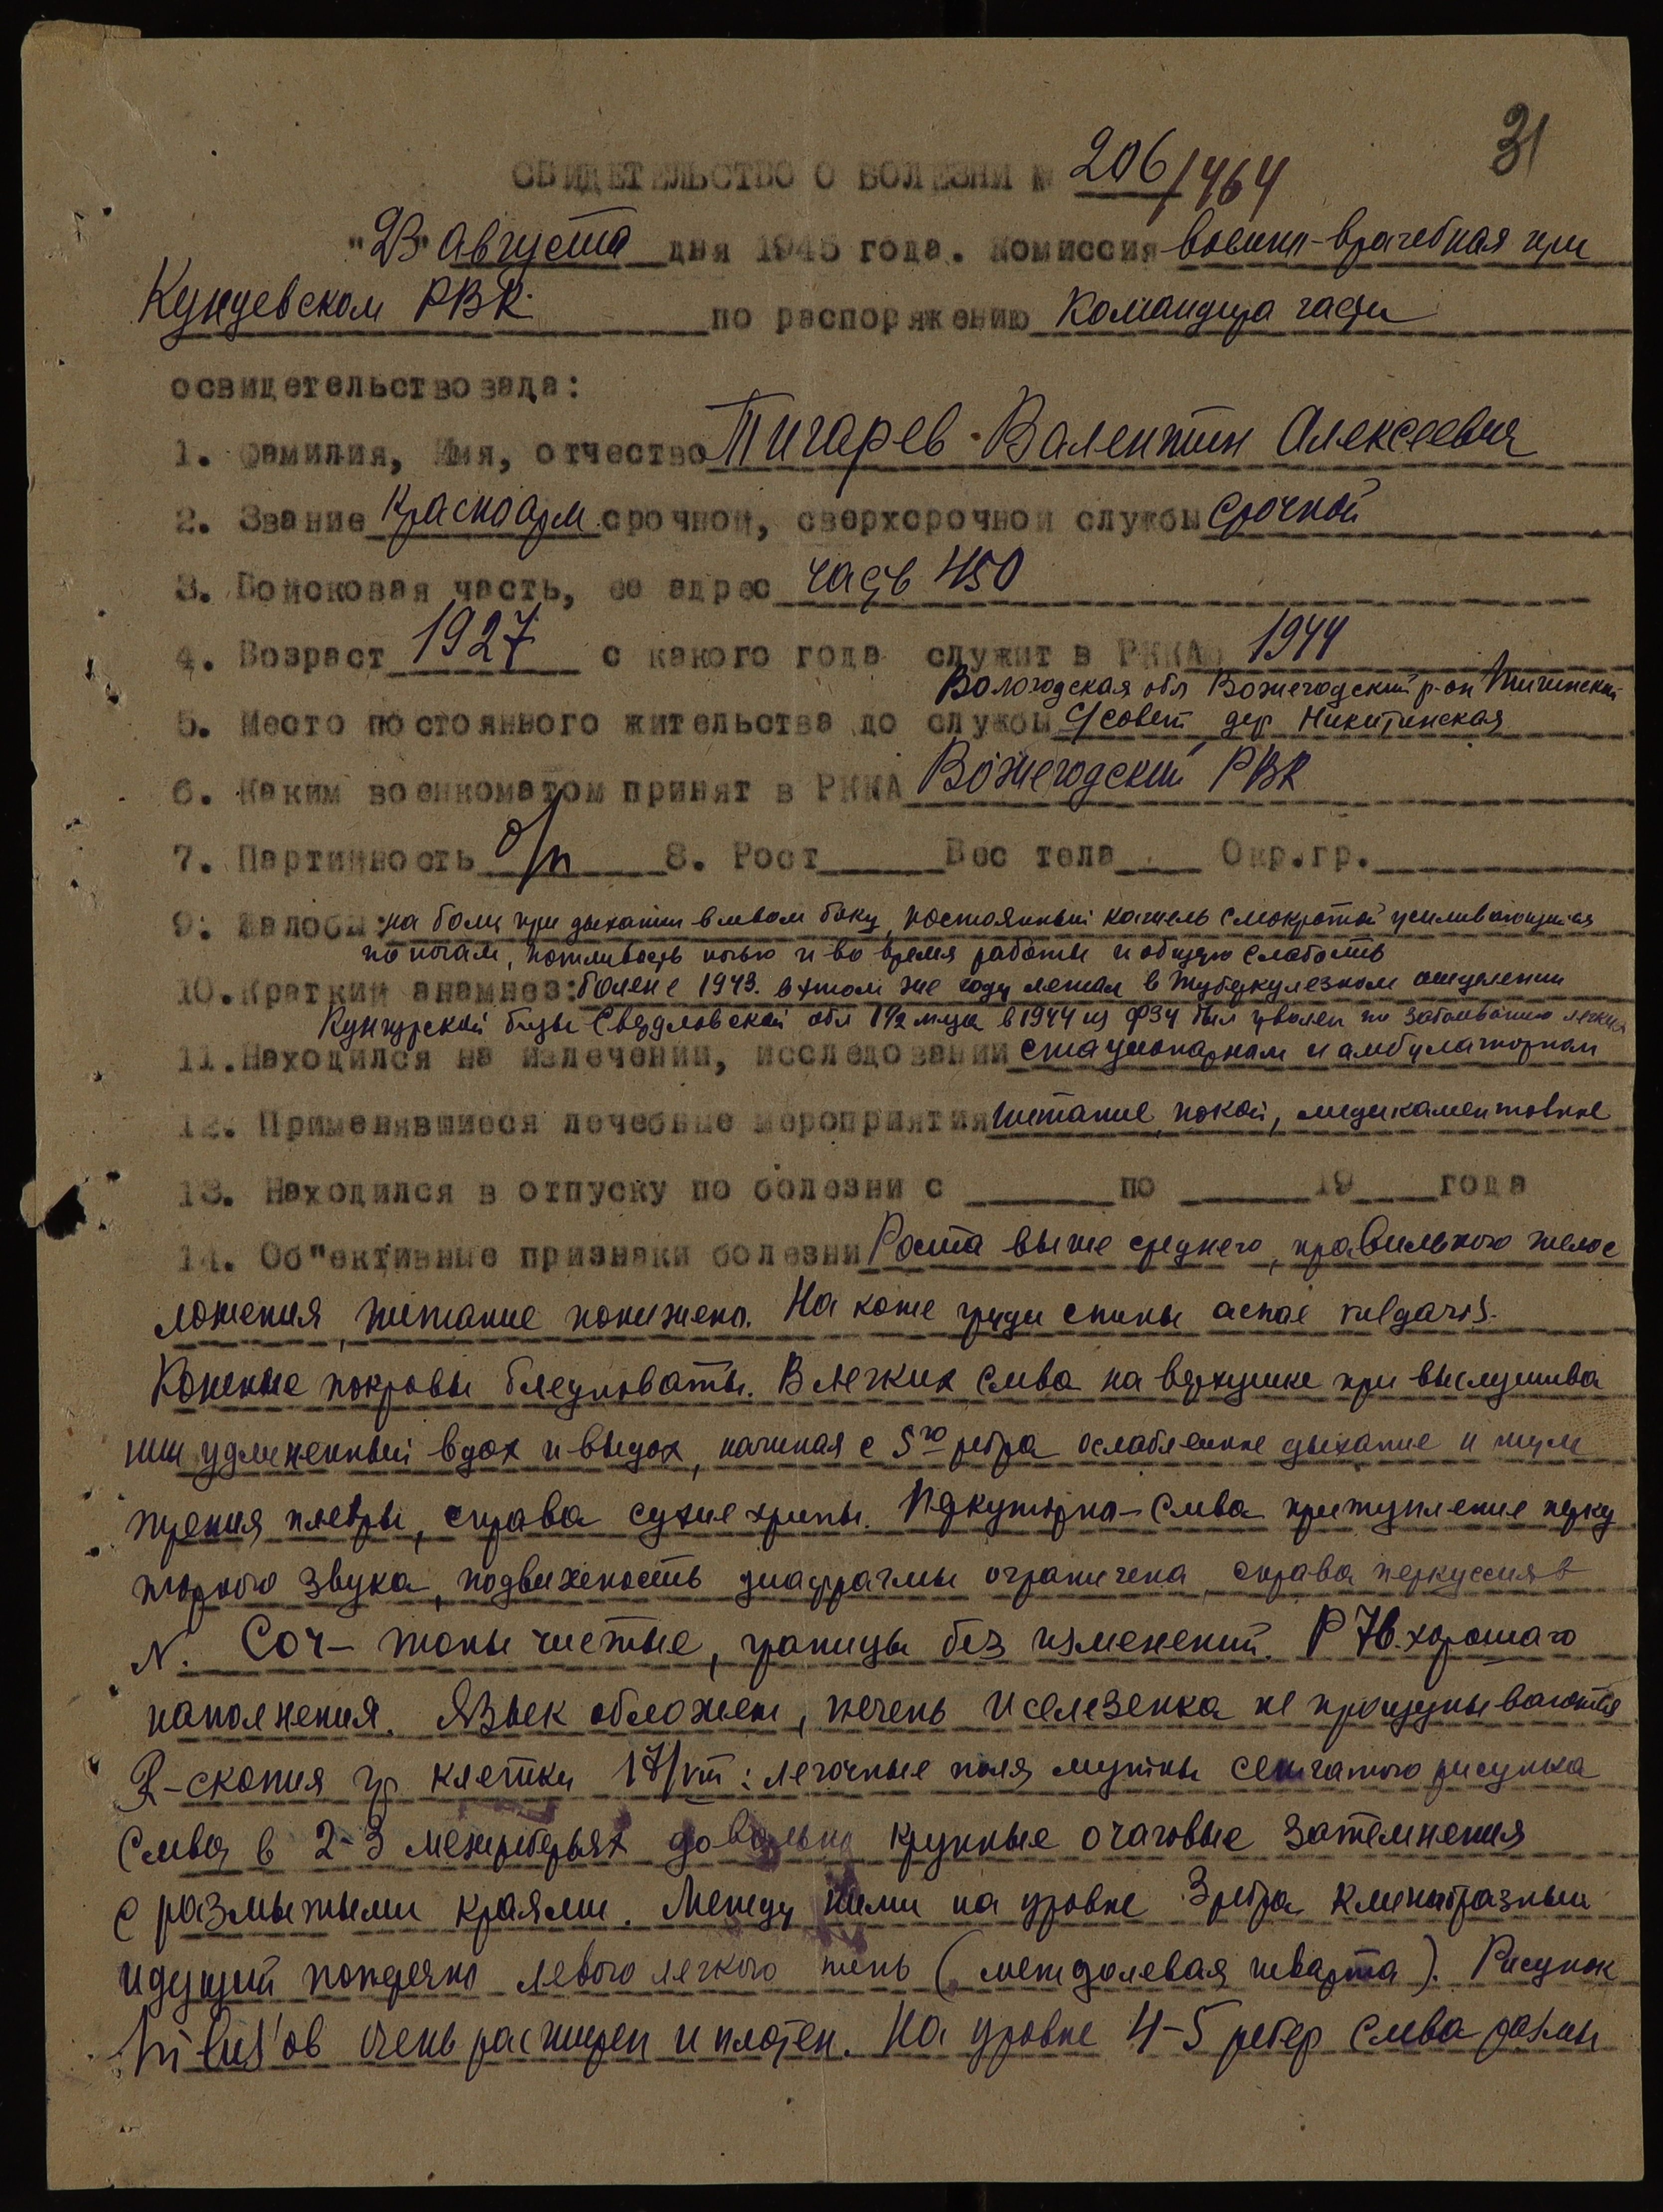 31
СВИДЕТЕЛЬСТВО О БОЛЕЗНИ № 206/464
"23" августа дня 1945 года. Комиссия военно-врачебная при
Кунцевском РВК по распоряжению Командира части
освидетельствовала:
1. Фамилия, Имя, отчество Тигарев Валентин Алексеевич
2. Звание Красноарм. срочной, сверхсрочной службы Срочной
3. Войсковая часть, ее адрес часть 450
4. Возраст 1927 с какого года служит в РККА 1944
Вологодская обл Вожегодский р-он Тигинский
5. Место постоянного жительства до службы С/совет дер. Никитинская
6. Каким военкоматом принят в РККА Вожегодский РВК
7. Партийность б/п 8. Рост Вес тела Окр.гр.
9. Жалобы: на боли при дыхании в левом боку, постоянный кашель с мокротой усиливающийся
по ночам, потливость ночью и во время работы и общую слабость
10. Краткий анамнез: болен с 1943. в этом же году лежал в туберкулезном отделении
Кунгурской б-цы Свердловской обл 1 1/2 м-ца в 1944 из ФЗУ был уволен по заболеванию легких
11. Находился на излечении, исследовании стационарном и амбулаторном
12. Применявшиеся лечебные мероприятия питание, покой, медикаментовное
13. Находился в отпуску по болезни с по 19 года
14. Об"ективные признаки болезни Роста выше среднего, правильного телос
ложения, питание понижено. На коже груди спины acnae vulgaris.
Кожные покровы бледноваты. В легких слева на верхушке при выслушива
нии удлиненный вдох и выдох, начиная с 5го ребра ослабленное дыхание и шум
трения плевры, справа сухие хрипы. Перкуторно - слева притупление перку
торного звука, подвижность диафрагмы ограничена, справа перкуссия в
N. Соч- тоны чистые, границы без изменений. Р 78. хорошаго
наполнения. Язык обложен, печень и селезенка не прощупываются
R-скопия гр. клетки 17/VIII: легочные поля мутны сетчатого рисунка
Слева в 2-3 межреберьях довольно крупные очаговые затемнения
с размытыми краями. Между ними на уровне 3 ребра клинообразный
идущий поперечно левого легкого тень (междолевая шварта). Рисунок
hilus'ов очень расширен и плотен. На уровне 4-5 ребер слева